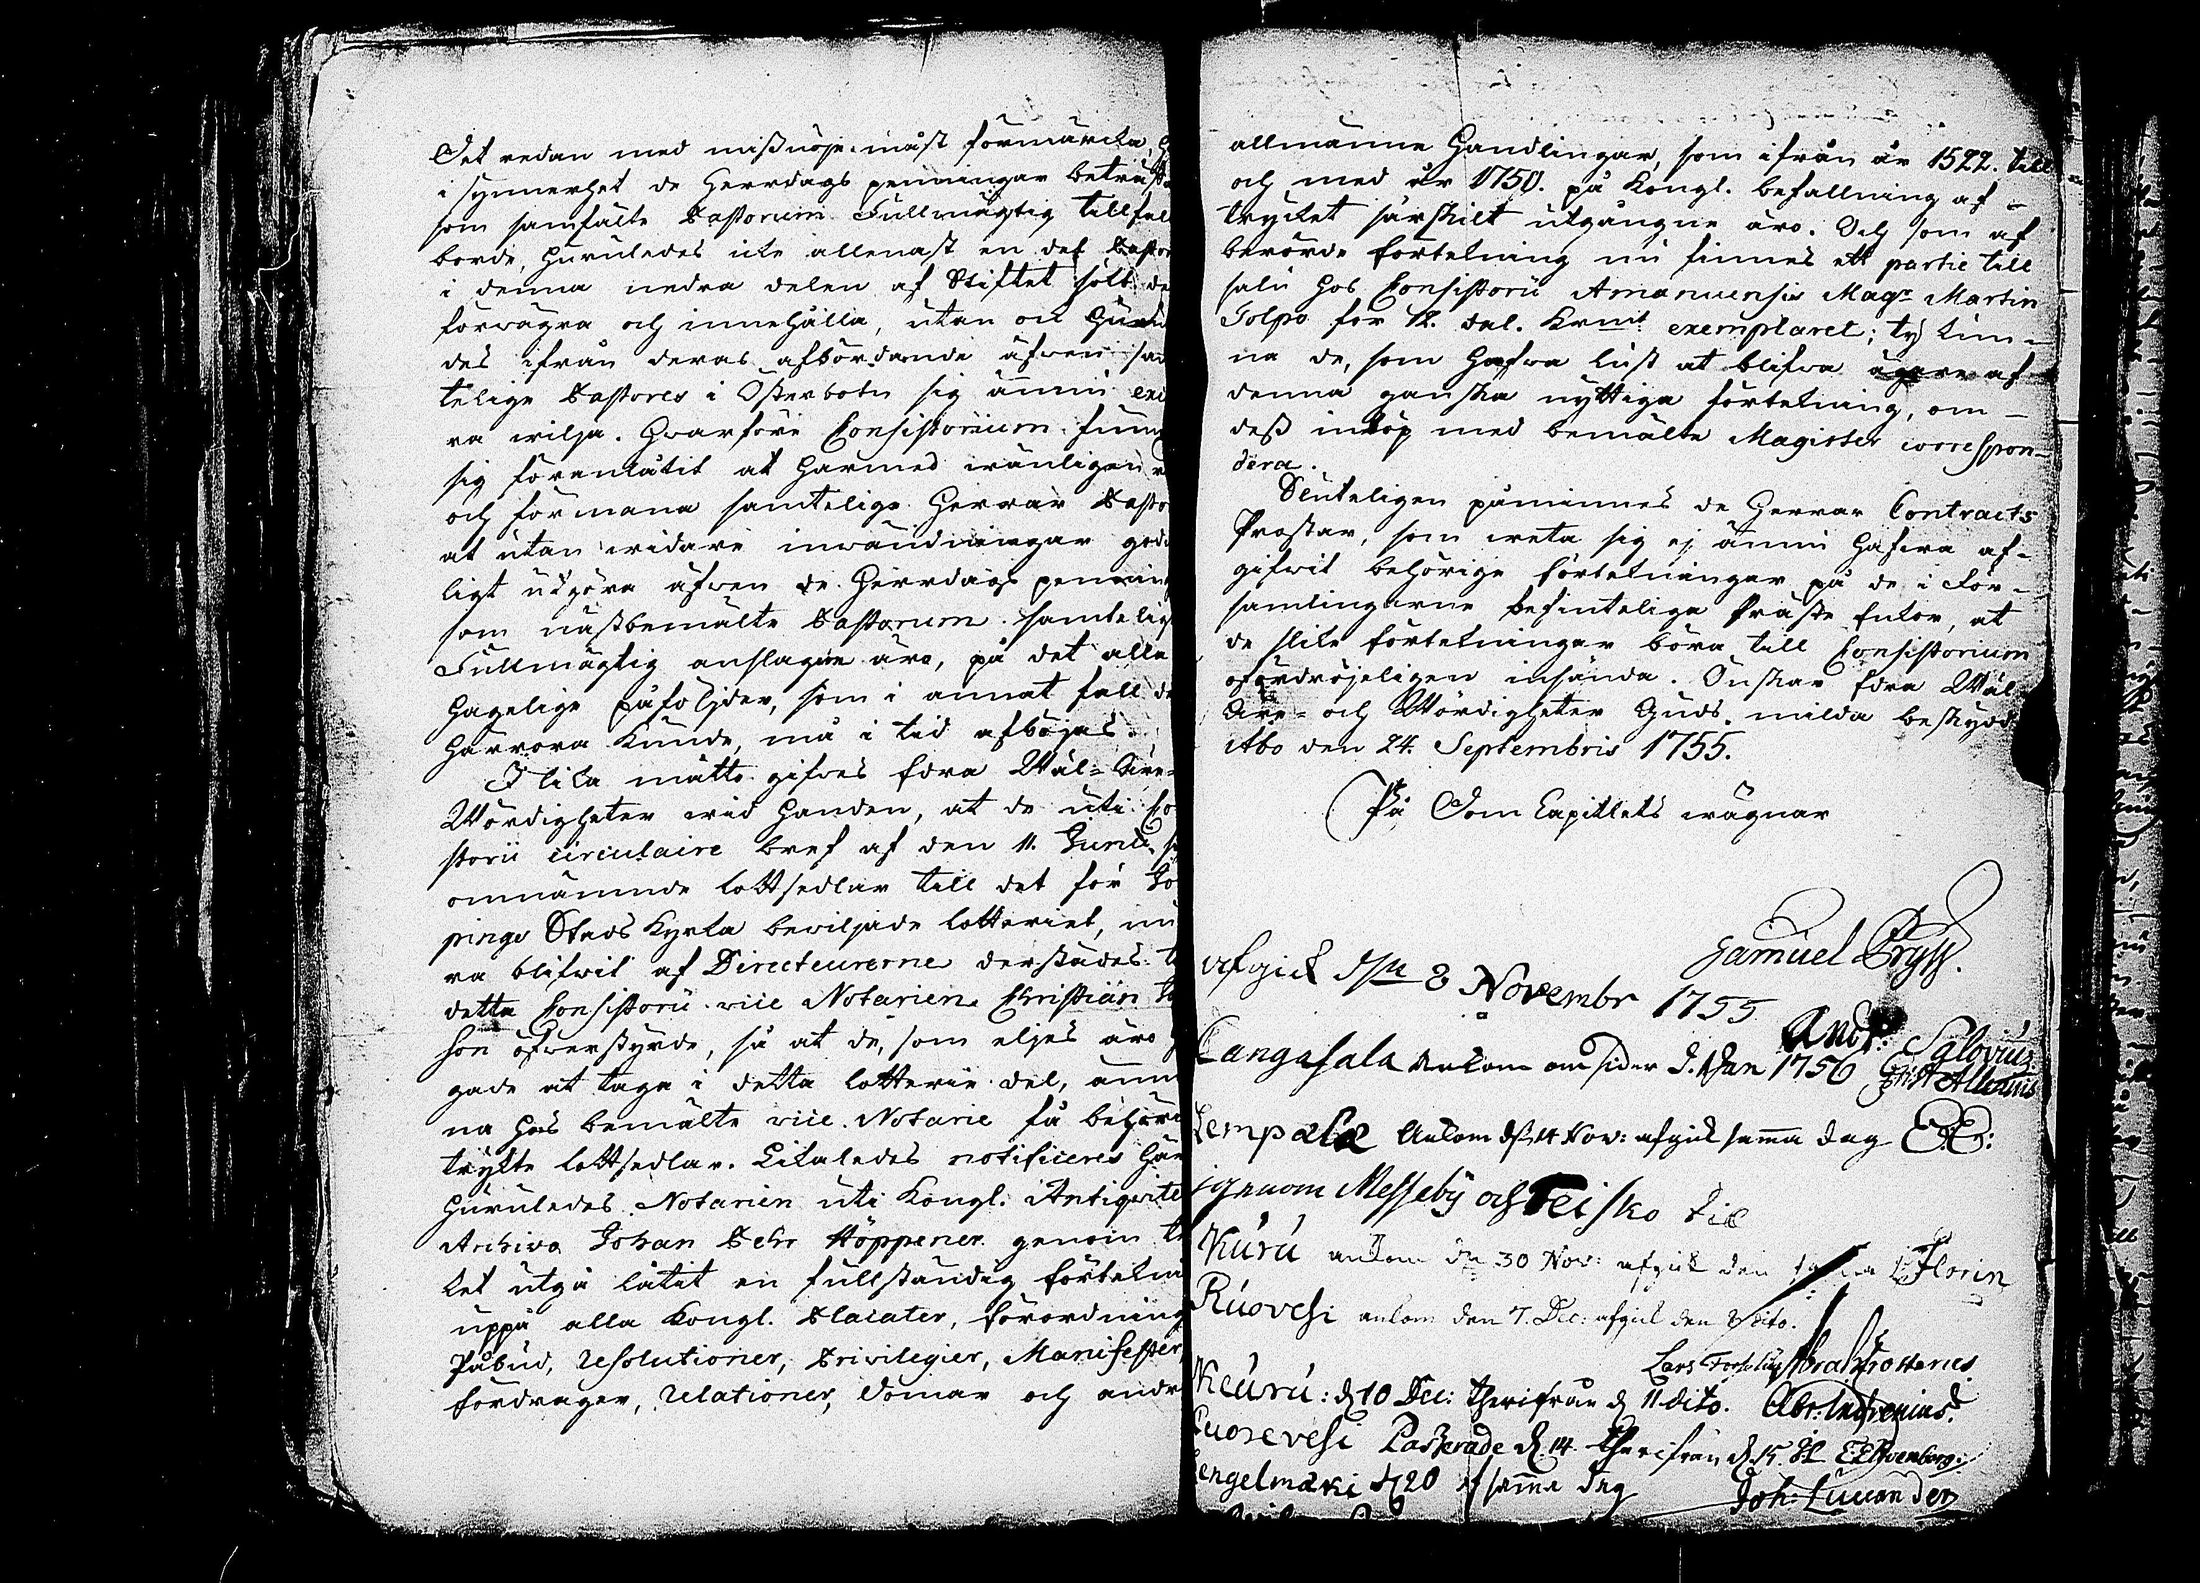 Det redan med missnöje måst förmärcka,
i synnerhet de Herrdags penningar beträff
som samfälte Pastorum Fullmägtig tillfal
borde, huruledes icke allenast en del Pastor
i denna nedra delen af Stiftet sökt de
förvägra och innehålla, utan ock huru
des ifrån deras afbördande äfven sam
telige Pastores i Österbotn sig ännu
ra vilja. Hvarföre Consistorium funn
sig föranlåtit at härmed vänligen
och förmana samtelige Herrar Pasto
at utan vidare invändningar god
ligt utgöra äfven de Herrdags penning
som nästbemälte Pastorum samtelig
Fullmägtig anslagne äro, på det alla
hagelige påfölgder, som i annat fall de
härröra kunde, må i tid afböjas.
I lika måtto gifves Edra Wäl-Äre-
Wördigheter vid handen, at de uti Co
storii circulaire bref af den 11. Junii
omnämnde lottsedlar till det för Jö
pings Stads Kyrka beviljade lotteriet, nu
ra blifvit af Directeurerne derstädes t
detta Consistorii vice Notarien Christian
son öfverstyrde, så at de, som eljes äro
gade at taga i detta lotterie del, ann
na hos bemälte vice Notarie få behöri
tryckte lottsedlar. Likaledes notificeres här
huruledes Notarien uti Kongl. Antiqvite
Archivo Johan Pehr Höppener genom t
ket utgå låtit en fullständig förteckn
uppå alla Kongl. Placater, förordning
Påbud, Resolutioner, Privilegier, Manifester,
fördrager, Relationer, Domar och andr
allmänne Handlingar, som ifrån år 1522. till
och med år 1750. på Kongl. befallning af-
trycket särskilt utgångne äro. Och som af
berörde förtekning nu finnes ett partie till
salu hos Consistorii Amanuensis Magr Martin
Tolpo för 12. dal. Krmt exemplaret; ty kun-
na de, som hafva lust at blifva ägare af
denna ganska nyttiga förtekning, om-
dess inköp med bemälte Magister correspon-
dera.
Sluteligen påminnes de Herrar Contracts
Prostar, som veta sig ej ännu hafva af-
gifvit behörige förtekningar på de i För-
samlingarne befintelige Präste Enkor, at
de slike förtekningar böra till Consistorium
ofördröjeligen insända. Önskar Edra Wäl-
Äre- och Wördigheter Guds milda beskydd
Åbo den 24. Septembris 1755.
På Dom Capitlets vägnar
Samuel Pryss.
afgick d 8 Novembr 1755
Cangasala ankom om sider d. Jan 1756
Lempälä Ankom d 14 Nov: afgick samma dag
igenom Messuby och Teisko til
Kuru ankom den 30 Nov: afgick den Florin
Ruovesi ankom den 7. Dec: afgick den 8 dito.
Keuru: d 10 Dec: therifrån d 11 dito. Abr: Indrenius.
Kuorevesi Passerade d. 14. therifrån d. 15.
Lengelmäki d 20 af samma dag Joh: Lucander